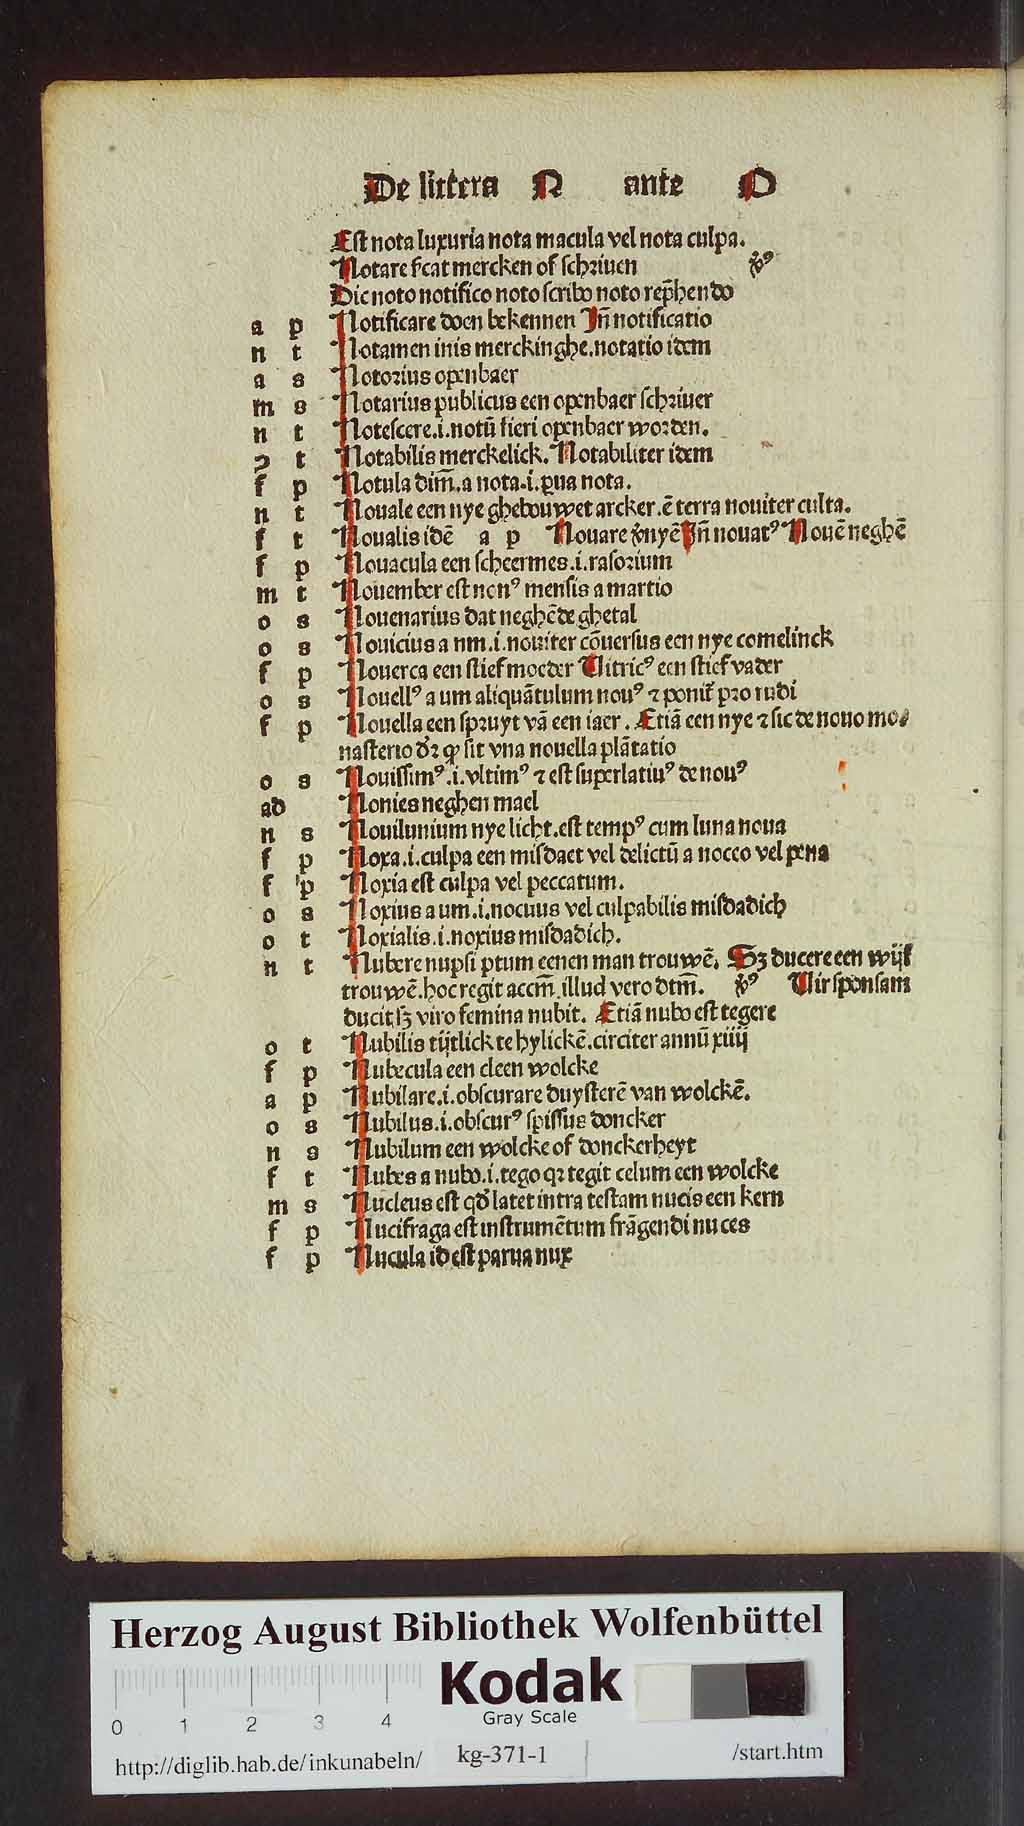 De littera N ante O
Est nota luxuria nota macula vel nota culpa.
Notare scat mercken of schriuen ꝟꝰ
Dic noto notifico noto scribo noto rep̄hendo
a p Notificare doen bekennen Jn̄ notificatio
n t Notamen inis merckinghe.notatio idem
a s Notorius openbaer
m s Notarius publicus een openbaer schriuer
n t Notescere.i.notū fieri openbaer worden.
ꝯ t Notabilis merckelick. Notabiliter idem
f p Notula dim̄.a nota.i.ꝑua nota.
n t Nouale een nye ghebouwet arcker.ē terra nouiter culta.
f t Noualis idē a p Nouare ꝟnyē Jn̄ nouatꝰ Nouē neghē
f p Nouacula een scheermes.i.rasorium
m t Nouember est nonꝰ mensis a martio
o s Nouenarius dat neghēde ghetal
o s Nouicius a nm.i.nouiter cōuersus een nye comelinck
f p Nouerca een stiefmoeder Uitricꝰ een stiefvader
o s Nouellꝰ a um aliquātulum nouꝰ ⁊ ponit̄ pro rudi
f p Nouella een spruyt vā een iaer. Etiā een nye ⁊ sic de nouo mo⸗
nasterio dꝛ̄ ꝙ sit vna nouella plātatio
o s Nouissimꝰ.i.vltimꝰ ⁊ est superlatiuꝰ de nouꝰ
ad Nonies neghen mael
n s Nouilunium nye licht.est tempꝰ cum luna noua
f p Noxa.i.culpa een misdaet vel delictū a noceo vel pena
f p Noxia est culpa vel peccatum.
o s Noxius a um.i.nocuus vel culpabilis misdadich
o t Noxialis.i.noxius misdadich.
n t Nubere nupsi ptum eenen man trouwē. Sꝫ ducere een wijf
trouwē.hoc regit accm̄.illud vero dtm̄. ꝟꝰ Uir sponsam
ducit sꝫ viro femina nubit. Etiā nubo est tegere
o t Nubilis tijtlick te hylickē.circiter annū xiiij
f p Nubecula een cleen wolcke
a p Nubilare.i.obscurare duysterē van wolckē.
o s Nubilus.i.obscurꝰ spissus doncker
n s Nubilum een wolcke of donckerheyt
f t Nubes a nubo.i.tego qꝛ tegit celum een wolcke
m s Nucleus est qd̄ latet intra testam nucis een kern
f p Nucifraga est instrumētum frāgendi nuces
f p Nucula id est parua nux
Herzog August Bibliothek Wolfenbüttel
Kodak
Gray Scale
0 1 2 3 4
http://diglib.hab.de/inkunabeln/ kg-371-1 /start.htm